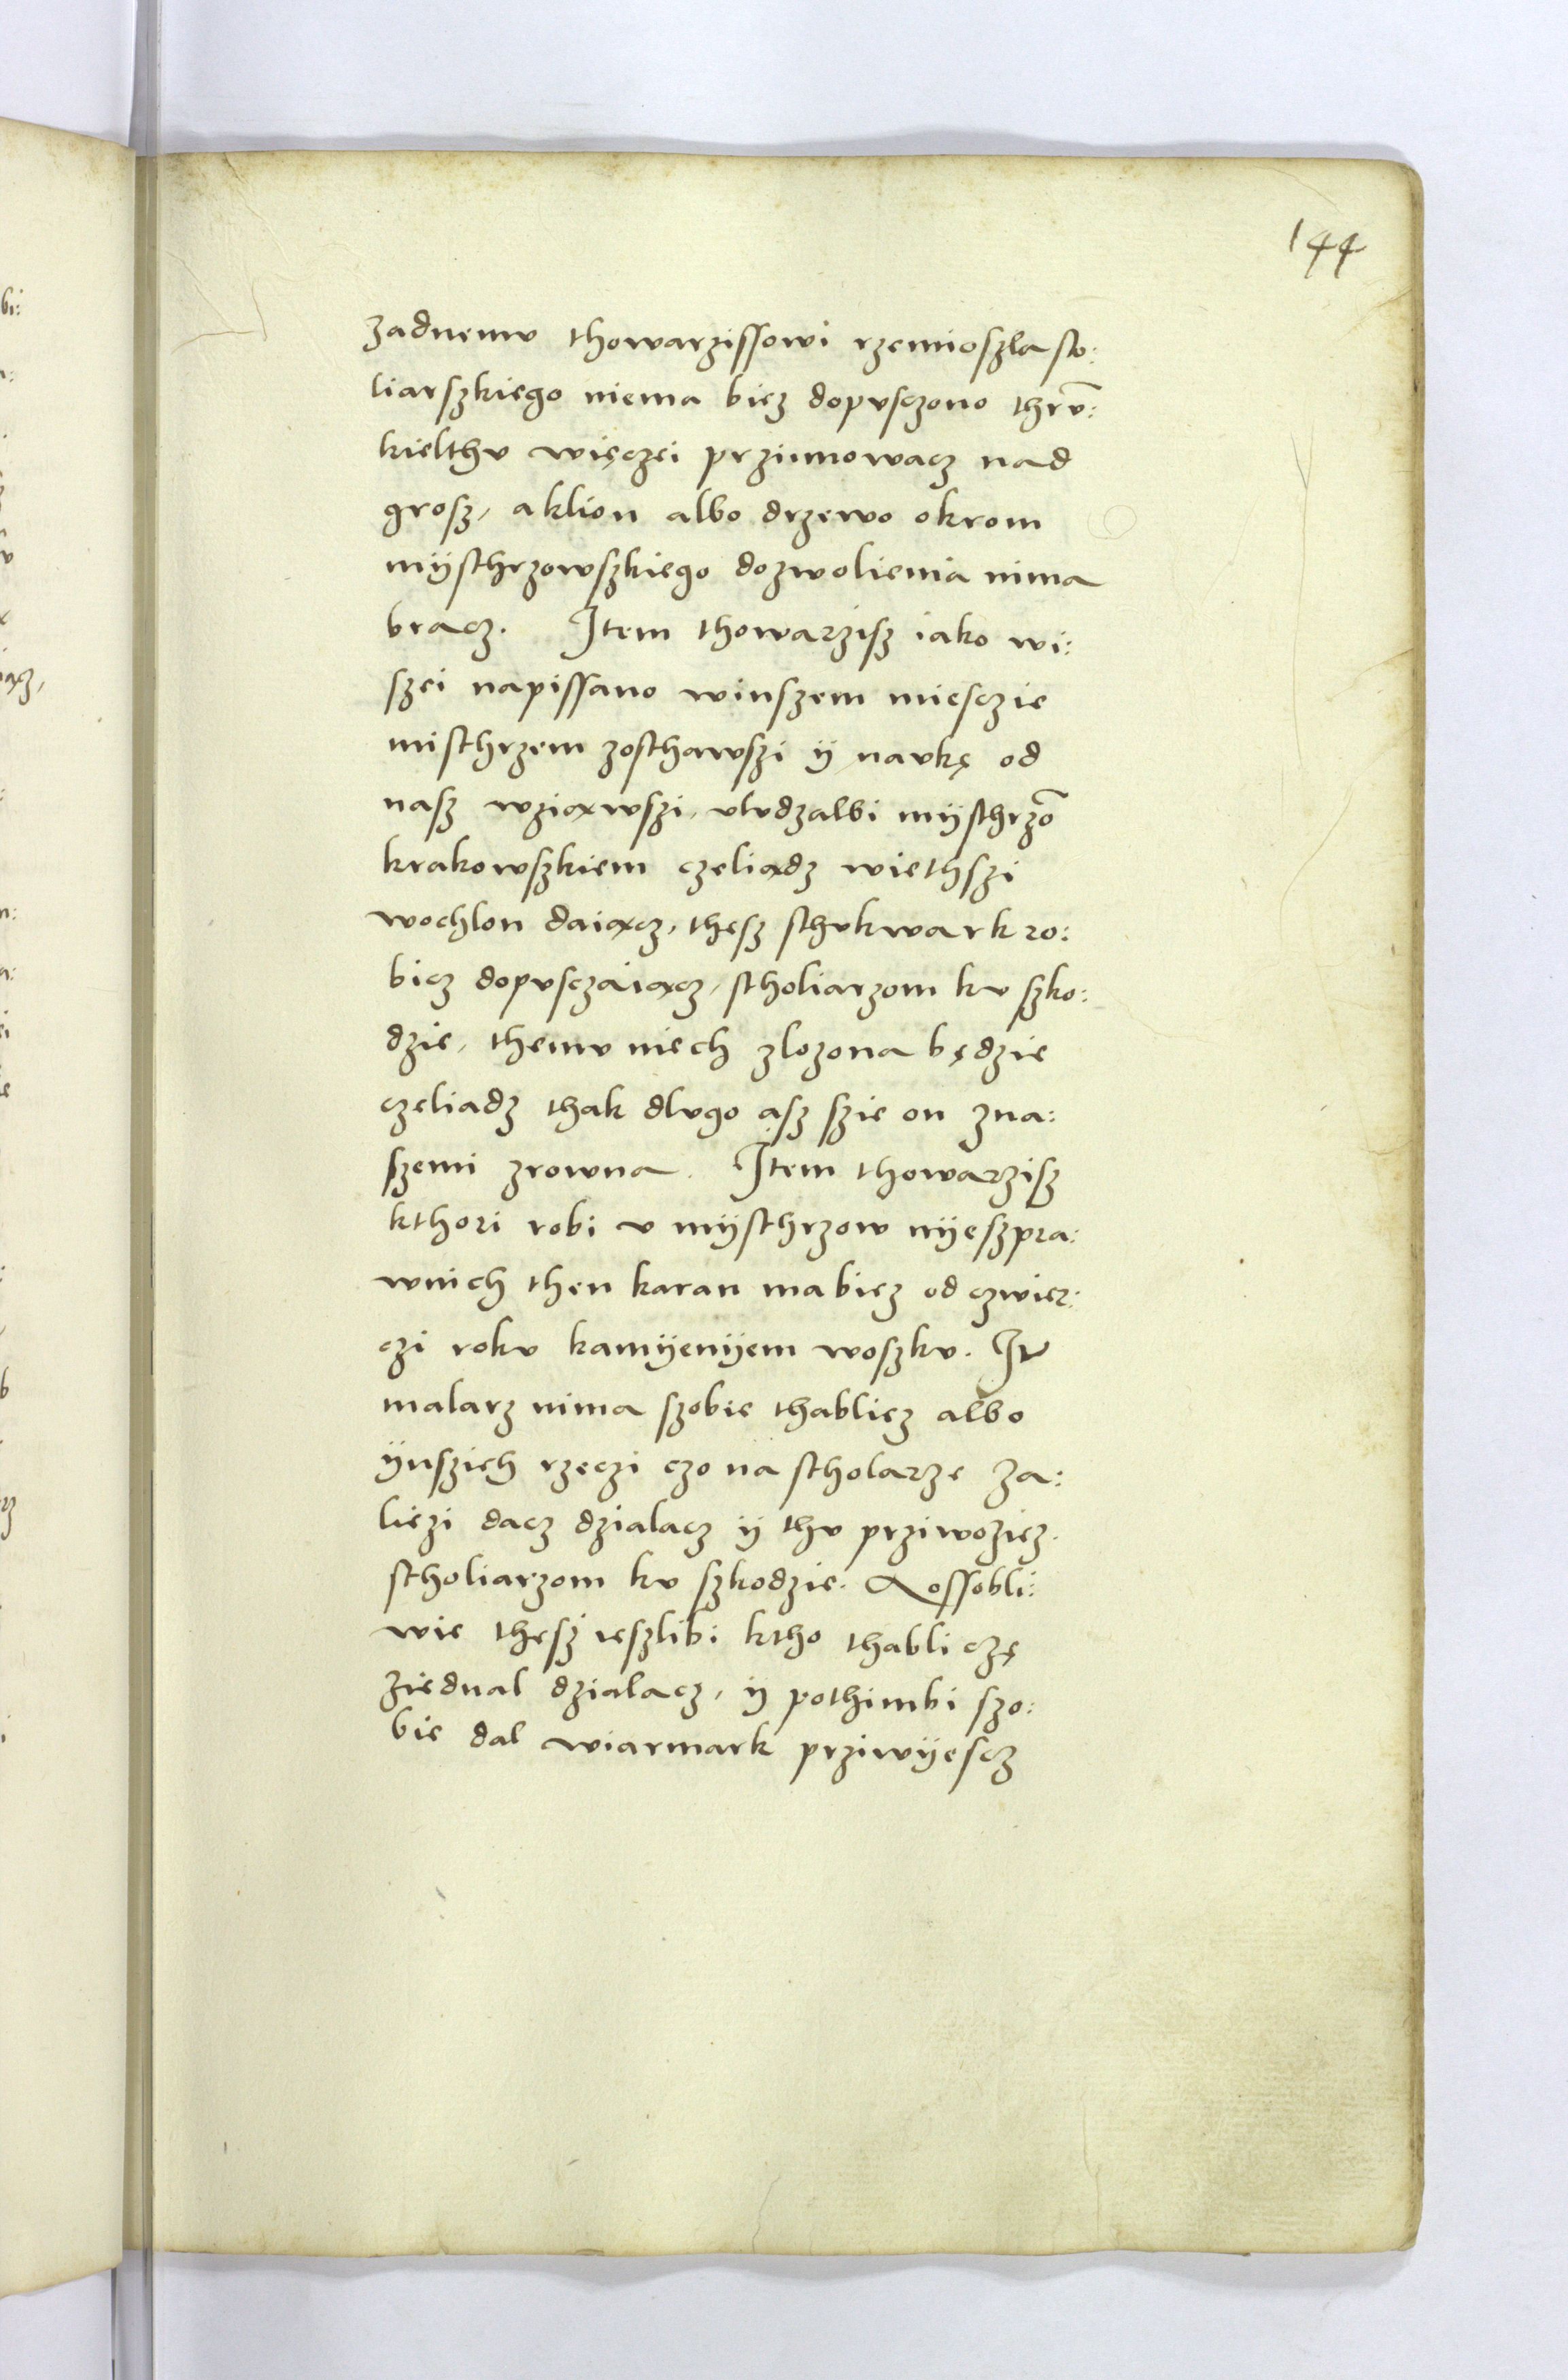 144
zadnemv thowarzissowi rzemioszla sto:
liarszkiego niema bicz dopvsczono thrv̄:
kielthv więczei przÿmowacz nad
grosz, aklion albo drzewo okrom
mÿsthrzowszkiego dozwolienia nima
bracz. Item thowarzisz iako wi:
szei napissano winszem miesczie
misthrzem zosthawszi ÿ navkę od
nasz wziąwszi, vludzalbi mÿsthrzō
krakowszkiem czeliądz wiethszi
wochlon daiącz, thesz sthvkwark ro:
bicz dopvsczaiącz, stholiarzom kv szko:
dzie, themv niech zlozona będzie
czeliadz thak dlvgo asz szie on zna:
szemi zrowna. Item thowarzisz
kthori robi v mÿsthrzow nÿeszpra:
wnich then karan ma bicz od czwier:
czi rokv kamÿenÿem woszkv. It
malarz nima szobie thablicz albo
ÿnszich rzeczi czo na stholarze za:
liezi dacz dzialacz ÿ thv prziwozicz.
stholiarzom kv szkodzie. A ossobli:
wie thesz ieszlibi ktho thabliczę
ziednal dzialacz, ÿ pothimbi szo:
bie dal wiarmark prziwÿescz